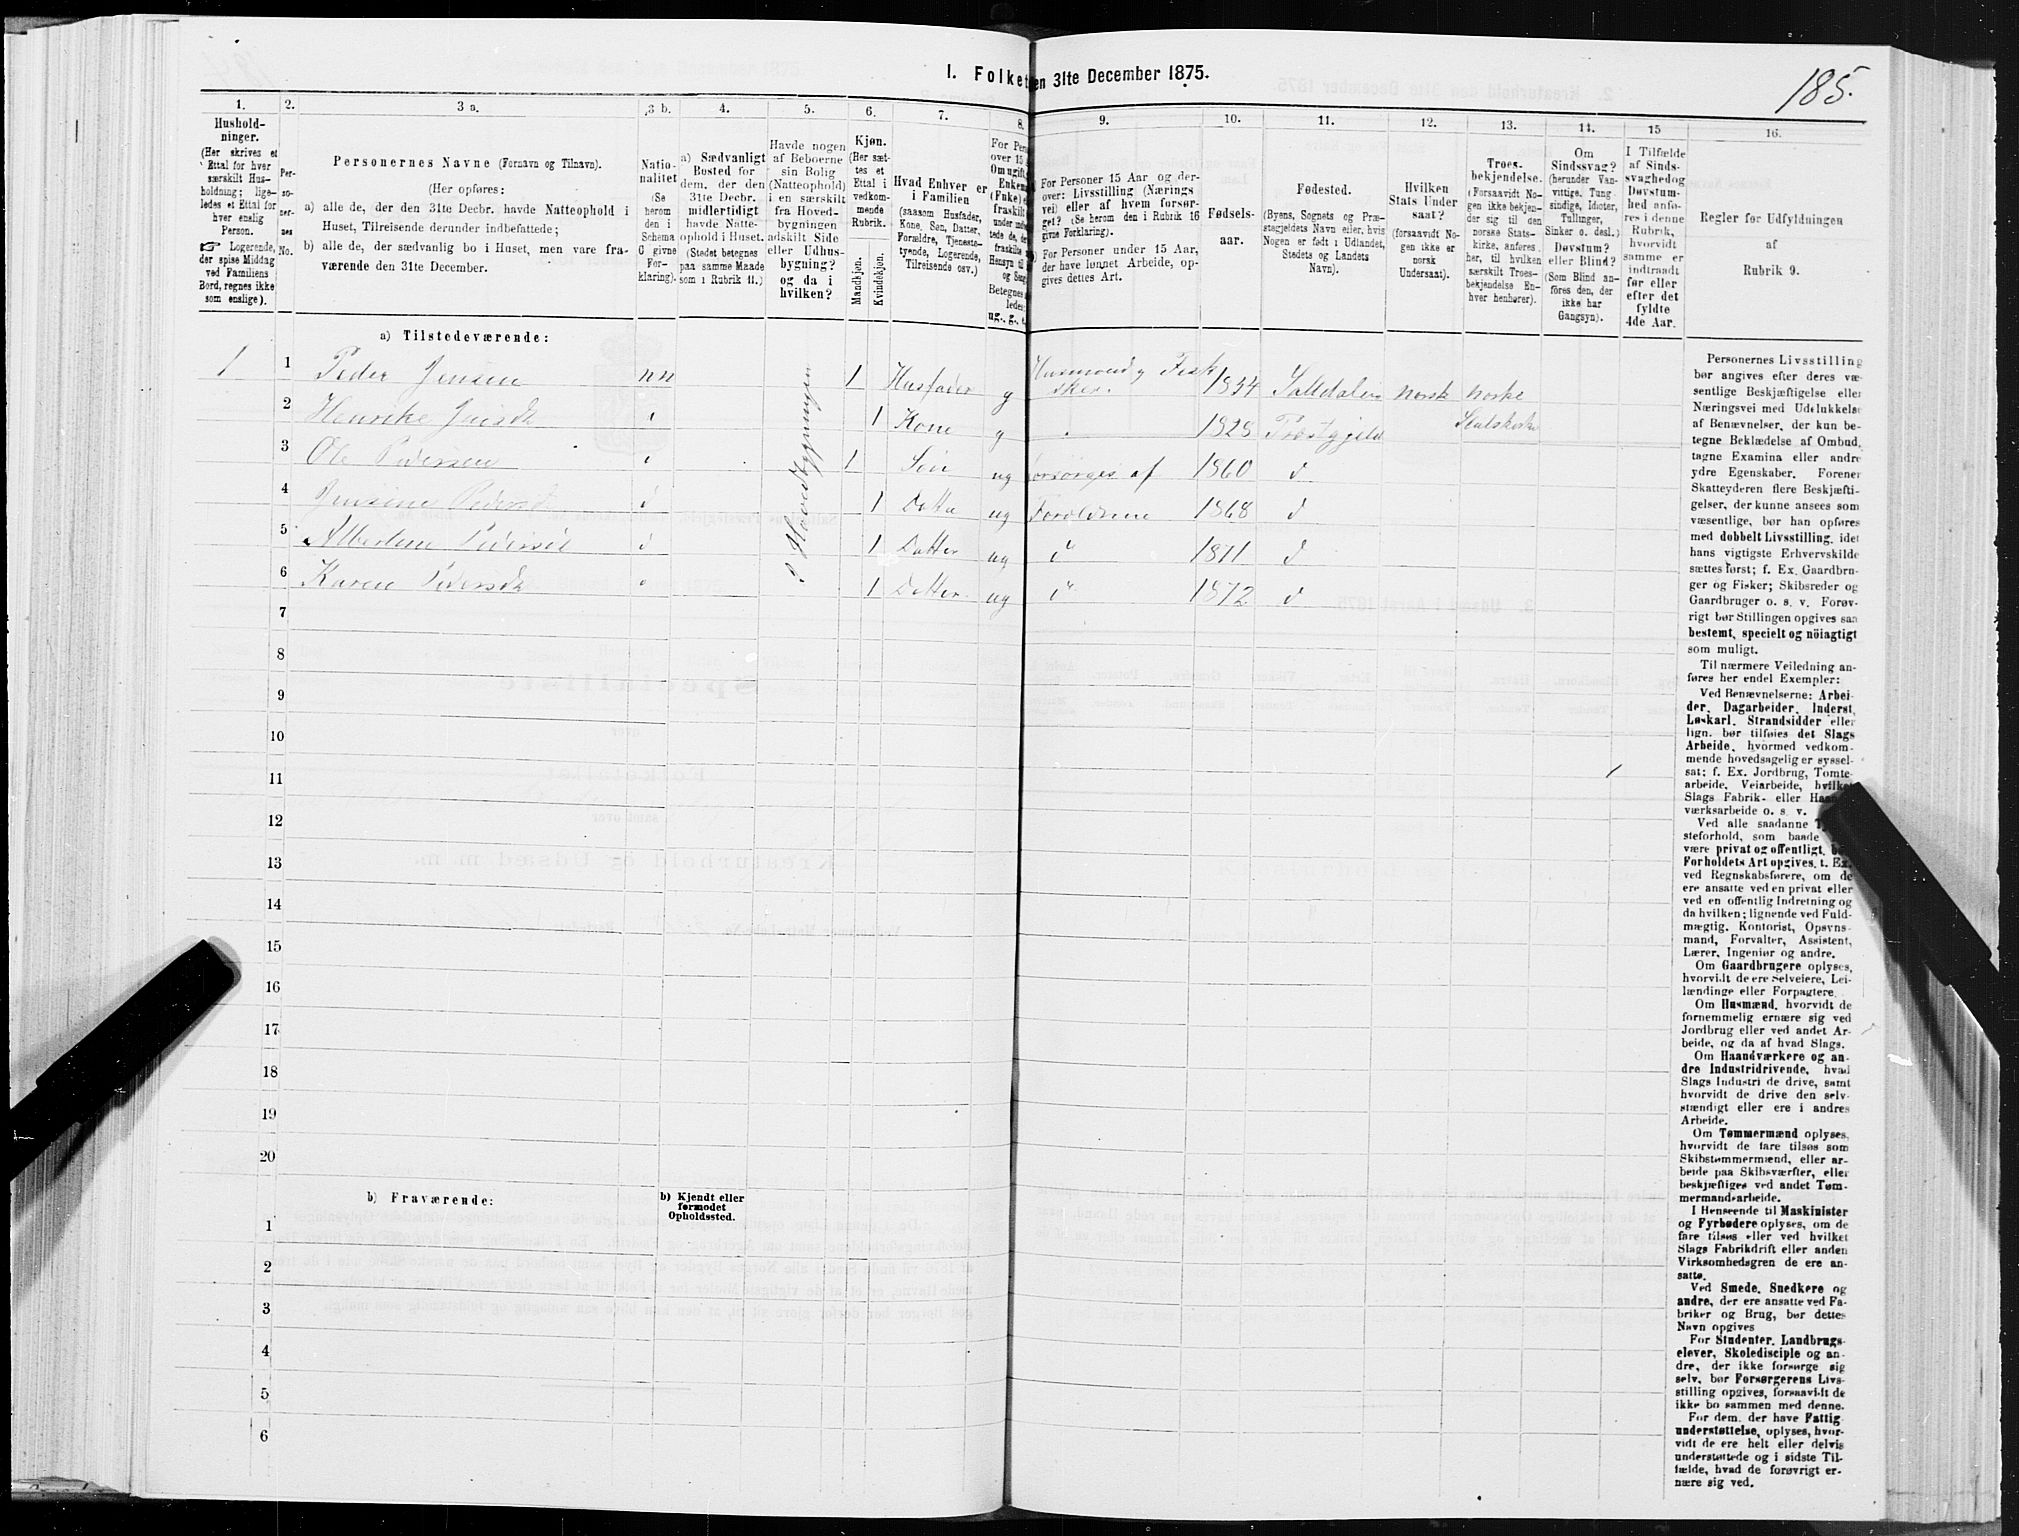 I. Folket
en 31te December 1875.
185.
1.
2.
3 a.
3 b.
4.
5.
6.
7.
8.
9.
10.
11.
12.
13.
14.
15
16.
Hushold-
ninger.
(Her skrives et
Ettal for hver
særskilt Hus-
holdning; lige-
ledes et Ettal for
hver enslig
Person.
☞ Logerende,
der spise Middag
ved Familiens
Bord, regnes ikke
som enslige).
Per-
so-
ner-
nes
No.
Personernes Navne (Fornavn og Tilnavn).
(Her opføres:
a) alle de, der den 31te Decbr. havde Natteophold i
Huset, Tilreisende derunder indbefattede;
b) alle de, der sædvanlig bo i Huset, men vare fra-
værende den 31te December.
Natio-
nalitet
(Se
herom
den i
Schema
6 givne
For-
klaring).
a) Sædvanligt
Bosted for
dem, der den
31te Decbr.
midlertidigt
havde Natte-
ophold i Huset.
(Stedet betegnes
paa samme Maade
som i Rubrik 11.)
Havde nogen
af Beboerne
sin Bolig
(Natteophold)
i en særskilt
fra Hoved-
bygningen
adskilt Side
eller Udhus-
bygning?
og da i
hvilken?
Kjøn.
(Her sæt-
tes et
Ettal i
vedkom-
mende
Rubrik.
Mandkjøn.
Kvindekjøn.
Hvad Enhver er
i Familien
(saasom Husfader,
Kone, Søn, Datter,
Forældre, Tjeneste-
tyende, Logerende,
Tilreisende osv.)
For Pers
over 15
Om ugift,
Enkem
(Fnke) e
fraskilt
under indb
tede de, de
fraskilte
Hensyn til
og Seng
Betegnes
ledes
ug., g., e.
For Personer 15 Aar og der-
over: Livsstilling (Nærings
vei) eller af hvem forsør-
get? (Se herom den i Rubrik 16
givne Forklaring).
For Personer under 15 Aar,
der have lønnet Arbeide, op-
gives dettes Art.
Fødsels-
aar.
Fødested.
(Byens, Sognets og Præ-
stegjeldets Navn eller, hvis
Nogen er født i Udlandet,
Stedets og Landets
Navn).
Hvilken
Stats Under
saat?
(forsaavidt No-
gen ikke er
norsk
Undersaat).
Troes-
bekjendelse.
(Forsaavidt No-
gen ikke bekjen-
der sig til den
norske Stats-
kirke, anføres
her, til hvilken
særskilt Troes-
bekjendelse En-
hver henhører).
Om
Sindssvag?
(herunder Van-
vittige, Tung-
sindige, Idioter,
Tullinger,
Sinker o. desl.)
Døvstum?
eller Blind?
(Som Blind an-
føres den, der
ikke har
Gangsyn).
I Tilfælde
af Sinds-
svaghed og
Døvstum-
hed anfø-
res i denne
Rubrik,
hvorvidt
samme er
indtraadt
før eller
efter det
fyldte
4de Aar.
Regler for Udfyldningen
af
Rubrik 9.
a) Tilstedeværende:
1 1 Peder Jensen nn 1 Husfader g Husmand og Fisk
sker. 1834 Saltdalen norsk norske
2 Henrike Jensdt i 1 Kone g 1825 Præstgjeld Statskirke
3 Ole Pedersen i 1 Søn ug forsørges af 1860 d
4 Jensine Pedersdt i 1 Datter ug Forældrene 1868 d
5 Albertine Pedersdt i 1 Datter ug i" 1871 d
6 Karen Pedersdt i 1 Datter ug i" 1872 d
I Hovedbygningen
7
8
9
10
11
12
13
14
15
16
17
18
19
20
b) Fraværende:
b) Kjendt eller
formodet
Opholdssted.
1
2
3
4
5
6
Personernes Livsstilling
bør angives efter deres væ-
sentlige Beskjæftigelse eller
Næringsvei med Udelukkelse
af Benævnelser, der kun be-
tegne Beklædelse af Ombud,
tagne Examina eller andre
ydre Egenskaber. Forener
Skatteyderen flere Beskjæfti-
gelser, der kunne ansees som
væsentlige, bør han opføres
med dobbelt Livsstilling, idet
hans vigtigste Erhvervskilde
sættes først; f. Ex. Gaardbru-
ger og Fisker; Skibsreder og
Gaardbruger o. s. v. Forøv-
rigt bør Stillingen opgives saa
bestemt, specielt og nöiagtigt
som muligt.
Til nærmere Veiledning an-
føres her endel Exempler:
Ved Benævnelserne: Arbei-
der, Dagarbeider, Inderst,
Løskarl, Strandsidder eller
lign. bør tilføies det Slags
Arbeide, hvormed vedkom-
mende hovedsagelig er syssel-
sat; f. Ex. Jordbrug, Tomte-
arbeide, Veiarbeide, hvilket
Slags Fabrik- eller Haand-
værksarbeide o. s. v.
Ved alle saadanne
steforhold, som baade
være privat og offentligt, bør
Forholdets Art opgives, t. Ex.
ved Regnskabsførere, om de
ere ansatte ved en privat eller
ved en offentlig Indretning og
da hvilken; lignende ved Fuld-
mægtig, Kontorist, Opsyns-
mand, Forvalter, Assistent,
Lærer, Ingeniør og andre.
Om Gaardbrugere oplyses,
hvorvidt de ere Selveiere, Lei-
lændinge eller Forpagtere.
Om Husmænd, hvorvidt de
fornemmelig ernære sig ved
Jordbrug eller ved andet Ar-
beide, og da af hvad Slags.
Om Haandværkere og an-
dre Industridrivende, hvad
Slags Industri de drive, samt
hvorvidt de drive den selv-
stændigt eller ere i andres
Arbeide.
Om Tømmermænd oplyses,
hvorvidt de fare tilsøs som
Skibstømmermænd, eller ar-
beide paa Skibsværfter, eller
beskjæftiges ved andet Tøm-
mermandsarbeide.
I Henseende til Maskinister
og Fyrbødere oplyses, om de
fare tilsøs eller ved hvilket
Slags Fabrikdrift eller anden
Virksomhedsgren de ere an-
satte.
Ved Smede, Snedkere og
andre, der ere ansatte ved Fa-
briker og Brug, bør dettes
Navn opgives
For Studenter, Landbrugs-
elever, Skoledisciple og an-
dre, der ikke forsørge sig
selv, bør Forsørgerens Livs-
stilling opgives, forsaavidt de
ikke bo sammen med denne.
For dem, der have Fattig-
understøttelse, oplyses, hvor-
vidt de ere helt eller delvis
understøttede og i sidste Til-
fælde, hvad de forøvrigt er-
nære sig ved.